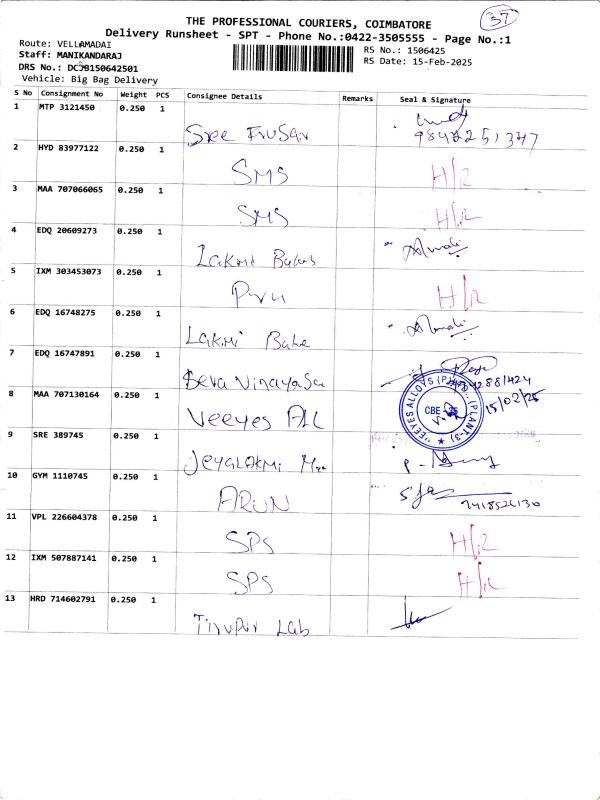 37
THE PROFESSIONAL COURIERS, COIMBATORE
Delivery Runsheet - SPT - Phone No.:0422-3505555 - Page No.:1
Route: VELLAMADAI
Staff: MANIKANDARAJ
DRS No.: DCJB150642501
Vehicle: Big Bag Delivery
RS No.: 1506425
RS Date: 15-Feb-2025
S No Consignment No Weight PCS Consignee Details Remarks Seal & Signature
1 MTP 3121450 0.250 1
Sree
2 HYD 83977122 0.250 1 SMS H/R
3 MAA 707066065 0.250 1 SMS H/R
4 EDQ 20609273 0.250 1 Lakmi
5 IXM 303453073 0.250 1 H/R
6 EDQ 16748275 0.250 1 Lakmi Bake
7 EDQ 16747891 0.250 1
15/02/25
8 MAA 707130164 0.250 1 Veeyes
CBE - 35
(PLANT-3)
9 SRE 389745 0.250 1
10 GYM 1110745 0.250 1 ARUN
11 VPL 226604378 0.250 1 SPS H/R
12 IXM 507887141 0.250 1 SPS H/R
13 HRD 714602791 0.250 1 Tirupur Lab